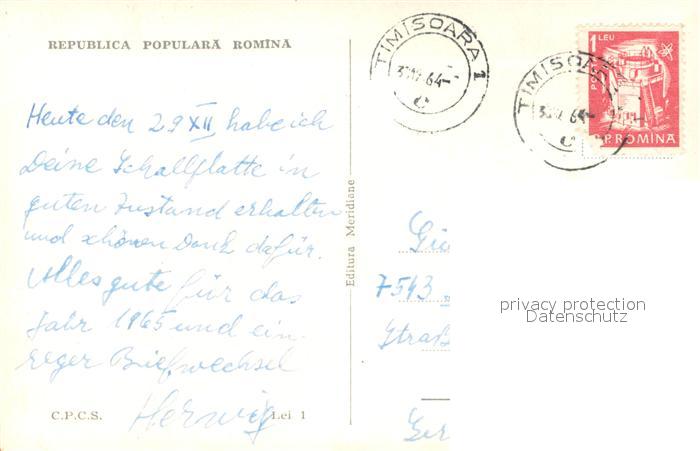 REPUBLICA POPULARĂ ROMÎNĂ
TIMIȘOARA 1
64
TIMIȘOAR
64
1 LEU
P.ROMINA
Heute den 29 XII habe ich
Deine Schallplatte in
guten Zustand erhalten
und schönen Dank dafür.
Alles gute für das
Jahr 1965 und ein
reger Briefwechsel
Herwig
C.P.C.S.
Lei 1
Editura Meridiane
7543
Straß
Ger
privacy protection
Datenschutz